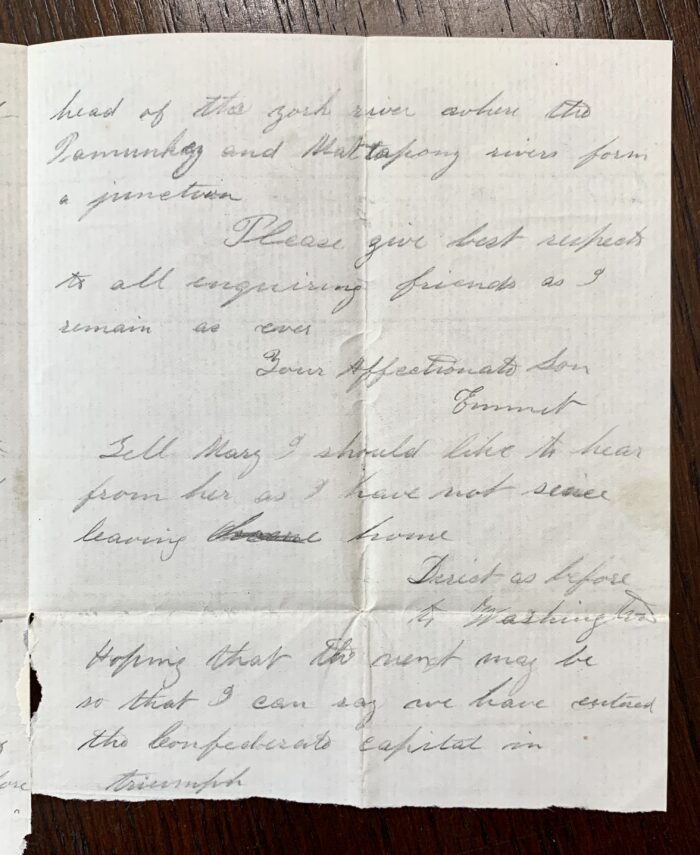 head of the york river where the
Pamunkey and Mattapony rivers form
a junction
Please give best respects
to all enquiring friends as I
remain as ever
Your Affectionate Son
Emmet
Tell Mary I should like to hear
from her as I have not since
leaving home
Direct as before
to Washington
Hoping that the next may be
so that I can say we have entered
the Confederate capital in
triumph